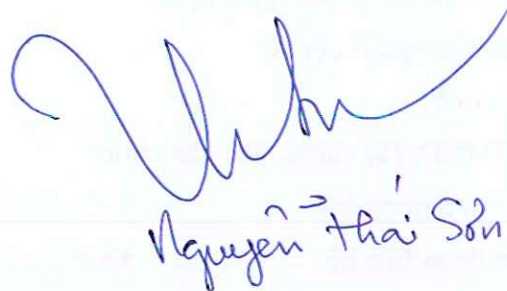 Nguyễn Thái Sơn